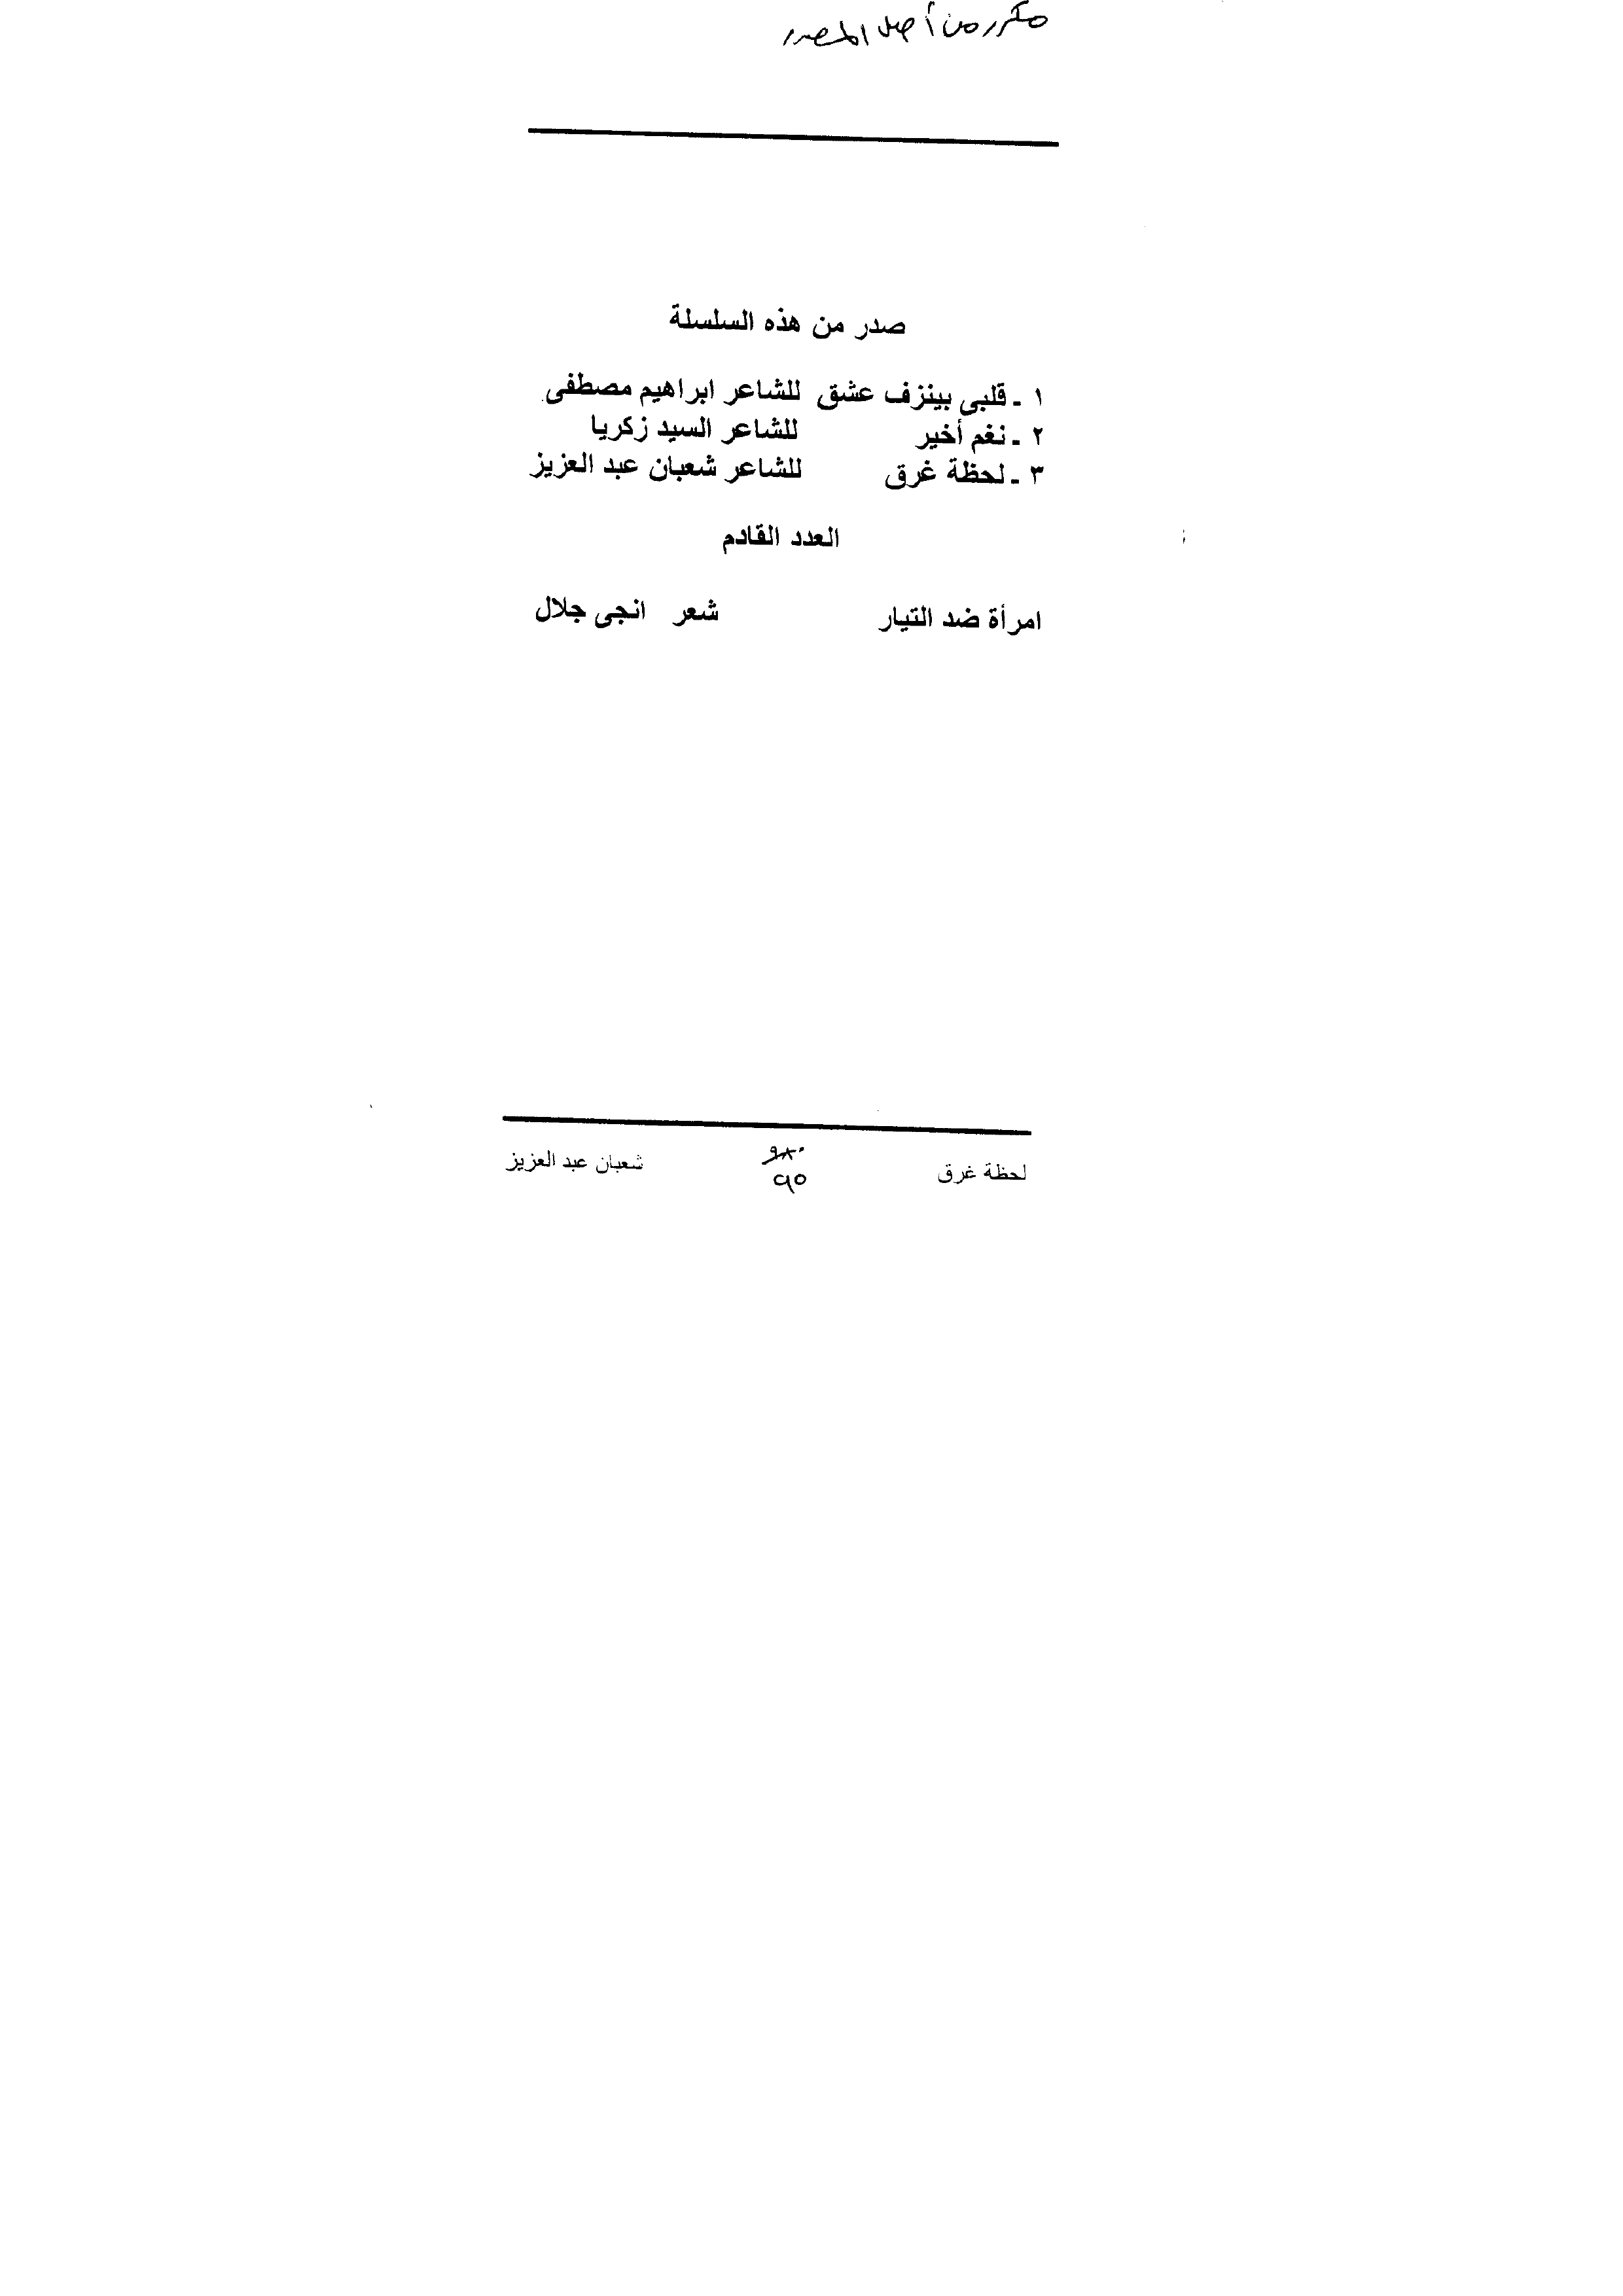 مكرر من أصل المصدر
صدر من هذه السلسلة
١ - قلبى بينزف عشق للشاعر ابراهيم مصطفى
٢ - نغم أخير للشاعر السيد زكريا
٣ - لحظة غرق للشاعر شعبان عبد العزيز
العدد القادم
امرأة ضد التيار شعر انجى جلال
لحظة غرق شعبان عبد العزيز